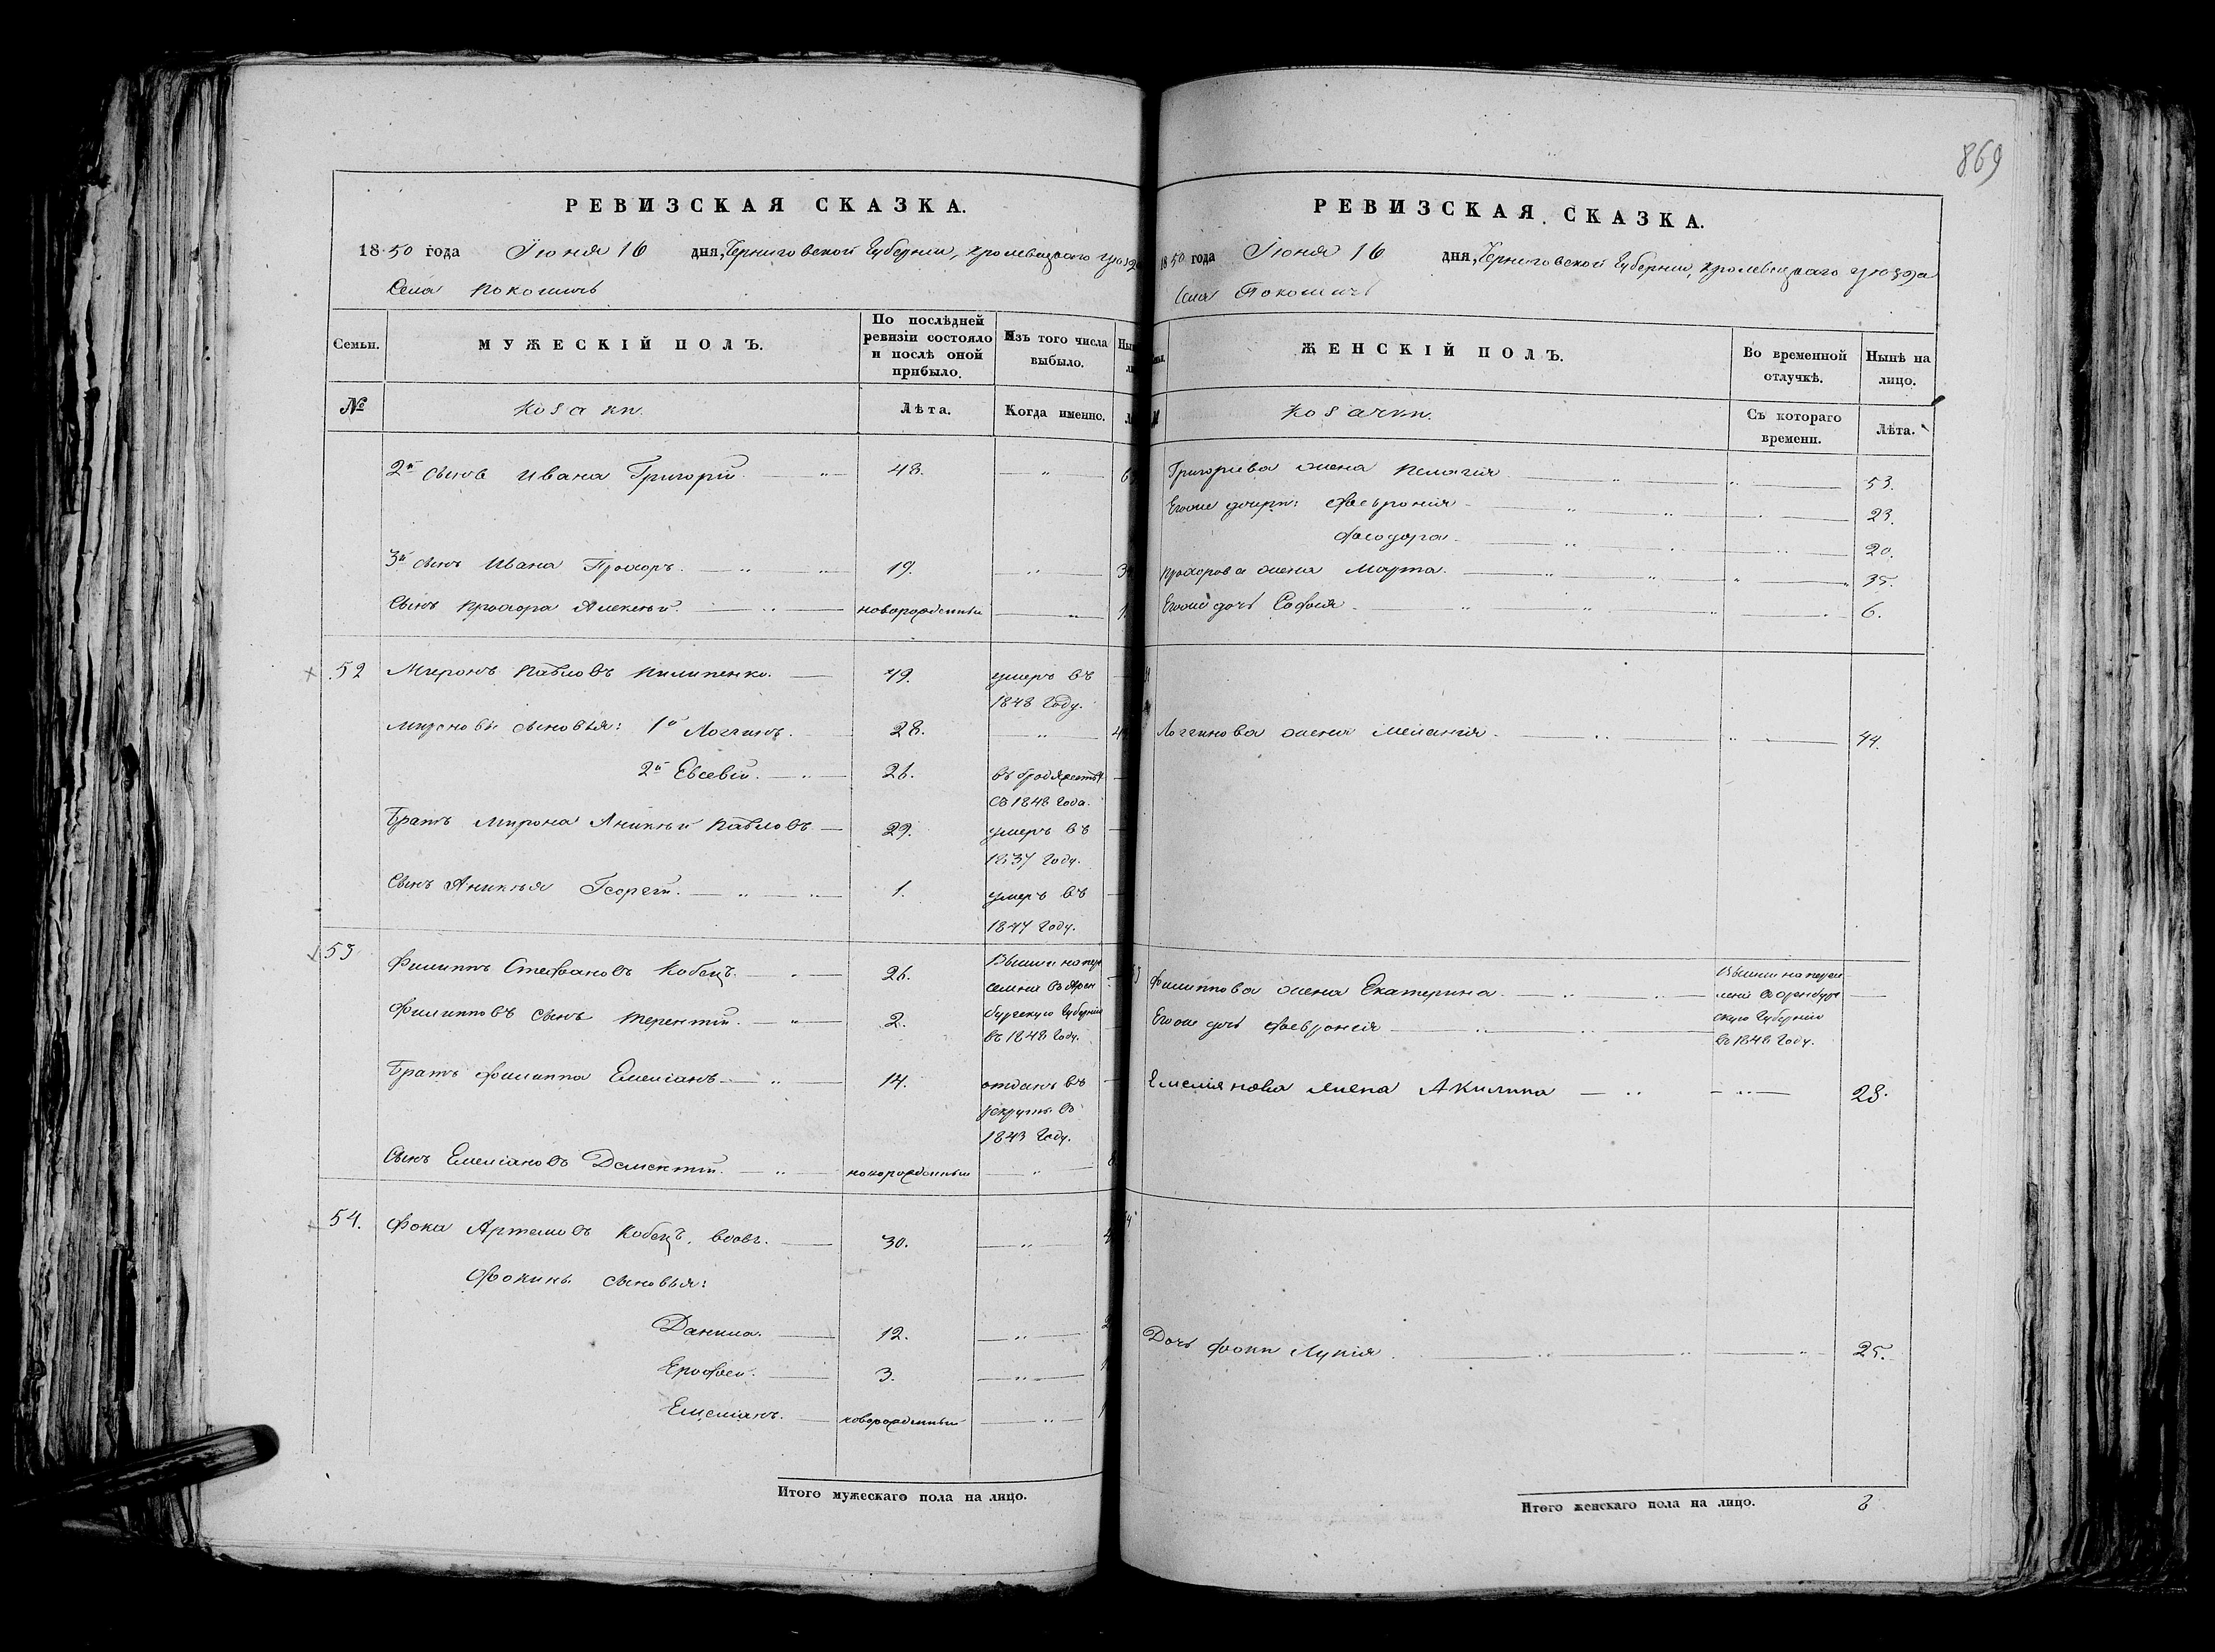 869
РЕВИЗСКАЯ СКАЗКА.
1850 года Іюня 16 дня, Черниговской Губерніи, Кролевецкаго уѣзда
Села Покошичъ
Семьи.
МУЖЕСКІЙ ПОЛЪ.
По послѣдней ревизіи состояло и послѣ оной прибыло.
Изъ того числа выбыло.
№
Козаки.
Лѣта.
Когда именно.
2й сынъ Ивана Григорій. 48.
3й сынъ Ивана Прохоръ. 19.
Сынъ Прохора Алексѣй. новорожденный
52 Миронъ Павловъ Пилипенко. 49. умеръ въ
1848 году.
Мироновы сыновья: 1й Логгинъ. 28.
2й Евсевій. 26. въ бродяжествѣ
съ 1848 года.
Братъ Мирона Аникѣй Павловъ 29. умеръ въ
1837 году.
Сынъ Аникѣя Георгій. 1. умеръ въ
1847 году.
53 Филиппъ Стефановъ Кобецъ. 26.
Филипповъ сынъ Терентій. 2.
Вышли на пере
селеніе въ Орен
бургскую Губернію
въ 1848 году.
Братъ Филиппа Емеліанъ 14. отданъ въ
рекруты въ
1843 году.
Сынъ Емеліановъ Дементій. новорожденный
54. Фока Артемовъ Кобецъ, вдовъ. 30.
Фокины сыновья:
Данило. 12.
Ерофей. 3.
Емеліанъ. новорожденный
Итого мужескаго пола на лицо.
РЕВИЗСКАЯ СКАЗКА.
1850 года Іюня 16 дня, Черниговской Губерніи, Кролевецкаго уѣзда
Села Покошичъ
ЖЕНСКІЙ ПОЛЪ.
Во временной отлучкѣ.
Нынѣ на лицо.
Козачки.
Съ котораго времени.
Лѣта.
Григоріева жена Пелагія 53.
Егоже дочери: Февронія 23.
Феодора 20.
Прохорова жена Марта. 35.
Егоже дочь Софія 6.
Логгинова жена Меланія 44.
Филиппова жена Екатерина
Егоже дочь Февронія
Вышли на пересе
леніе въ Оренбург
скую Губернію
въ 1848 году.
Емеліанова жена Акилина 28.
Дочь Фоки Лукія 25.
Итого женскаго пола на лицо. 8